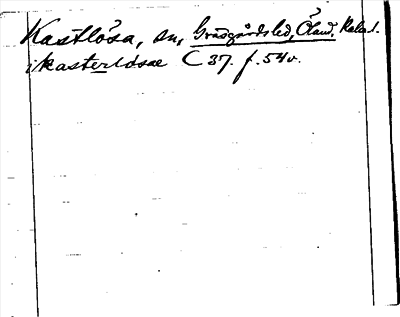 Kastlösa, sn, Gräsgårds hd, Öland. Kalm. l.
i kasterlösae C 37. f. 54 v.